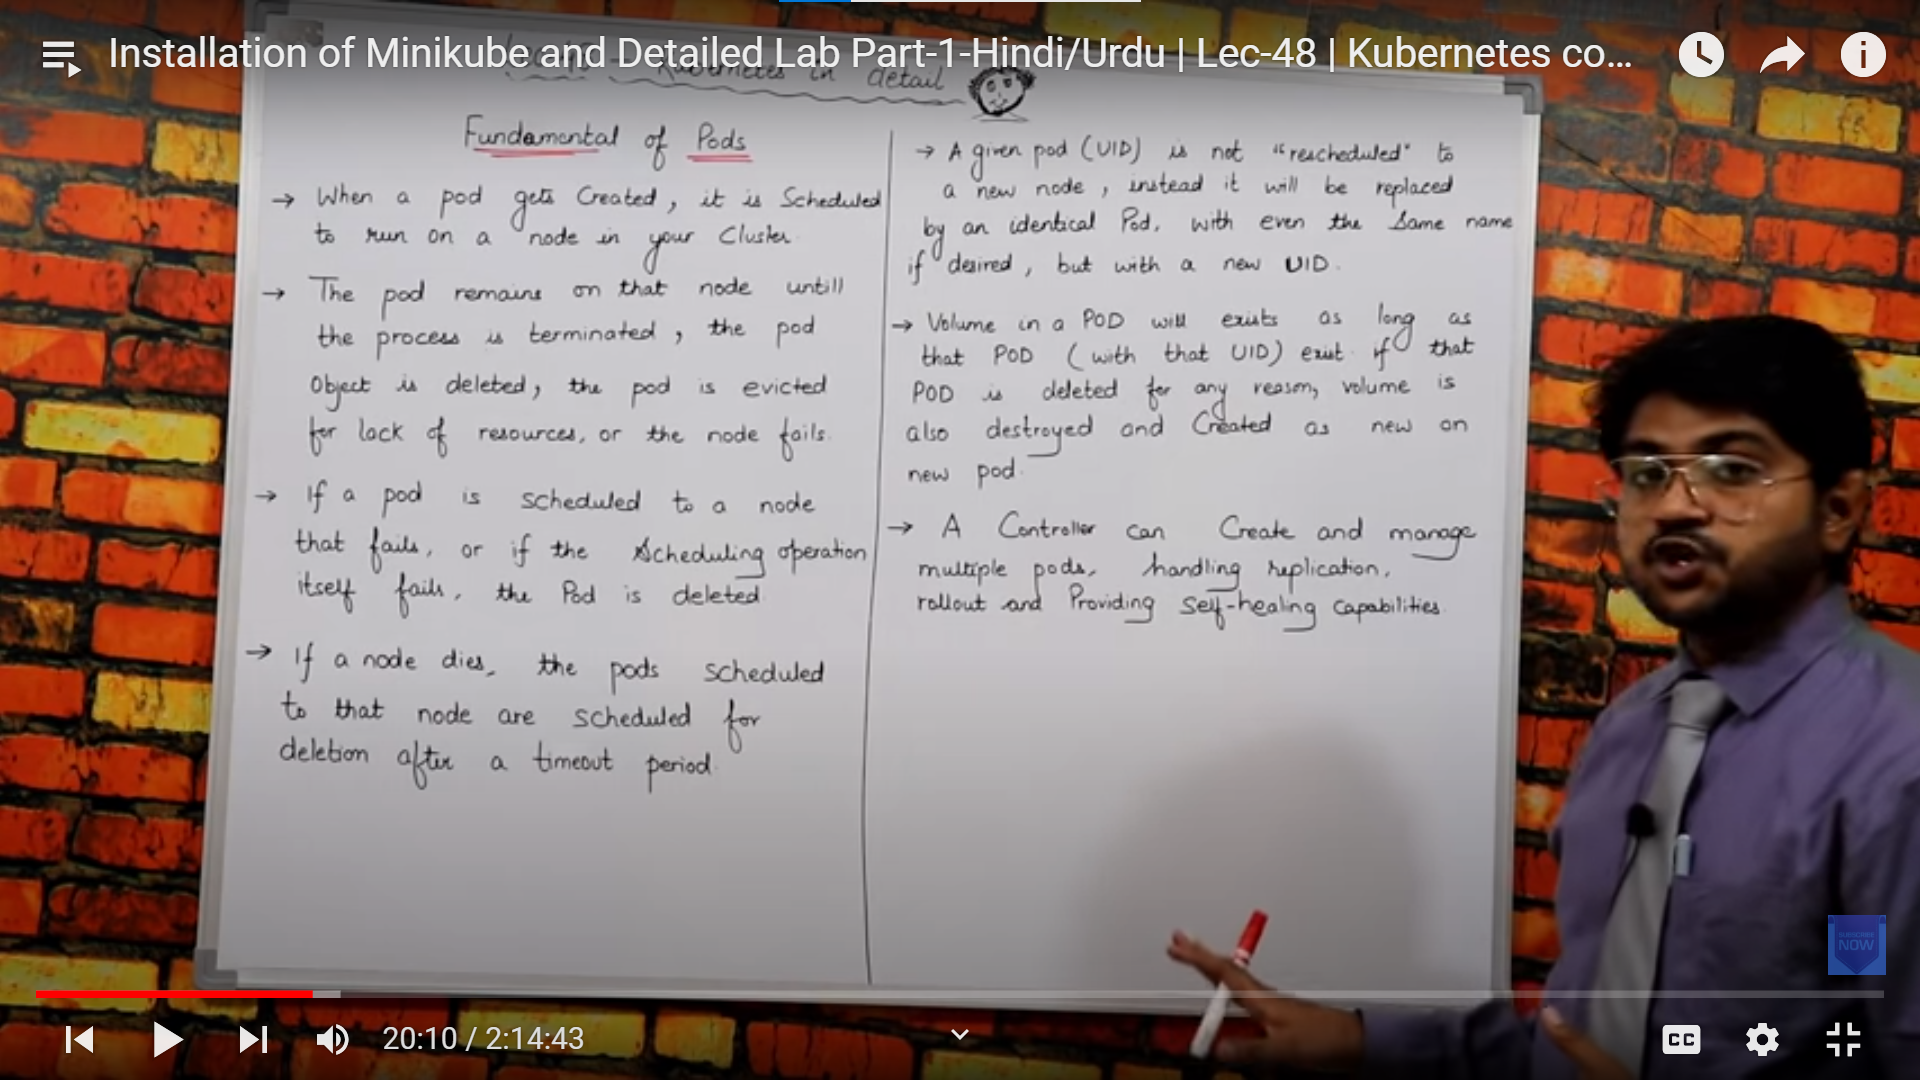 Installation of Minikube and Detailed Lab Part-1-Hindi/Urdu | Lec-48 | Kubernetes co...
Kubernetes in detail
Fundamental of Pods
→ When a pod gets Created, it is Scheduled
to run on a node in your Cluster.
→ The pod remains on that node untill
the process is terminated, the pod
Object is deleted, the pod is evicted
for lack of resources, or the node fails.
→ If a pod is scheduled to a node
that fails, or if the Scheduling operation
itself fails, the Pod is deleted.
→ If a node dies, the pods scheduled
to that node are scheduled for
deletion after a timeout period.
→ A given pod (UID) is not "rescheduled" to
a new node, instead it will be replaced
by an identical Pod, with even the Same name
if desired, but with a new UID.
→ Volume in a POD will exists as long as
that POD (with that UID) exist. if that
POD is deleted for any reason, volume is
also destroyed and Created as new on
new pod.
→ A Controller can Create and manage
multiple pods, handling replication,
rollout and Providing Self-healing capabilities.
SUBSCRIBE
NOW
20:10 / 2:14:43
CC